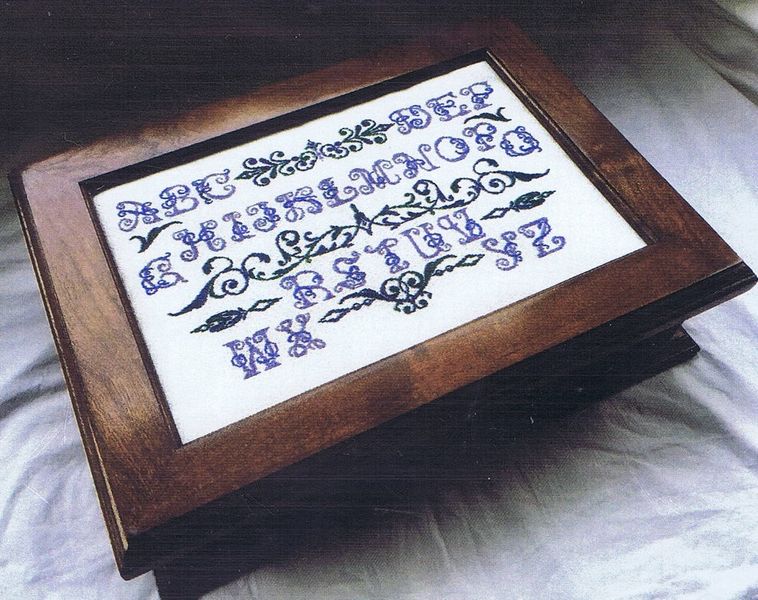 ABC DEF
GHIJKLMNOPQ
RSTUV
WX YZ